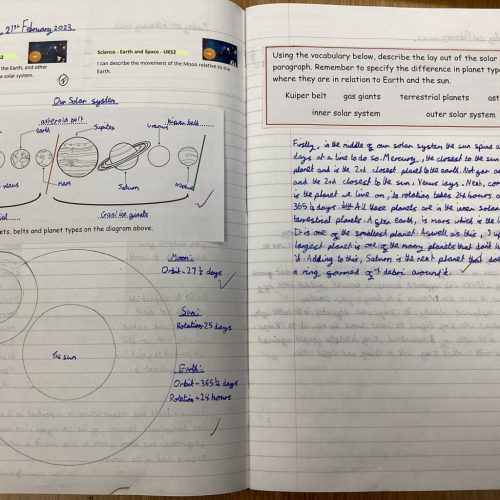 21st February 2023
Science - Earth and Space - UKS2
I can describe the movement of the Moon relative to the
Earth.
the Earth, and other
solar system.
Our Solar system
asteroid belt
earth
Jupiter
uranus
Kuiper belt
venus
mars
Saturn
Neptune
Gas/ice giants
ets, belts and planet types on the diagram above.
Moon:
Orbit - 27 1/2 days
Sun:
Rotation - 25 days
The sun
Earth:
Orbit - 365 1/4 days
Rotation - 24 hours
Using the vocabulary below, describe the lay out of the solar
paragraph. Remember to specify the difference in planet type
where they are in relation to Earth and the sun.
Kuiper belt gas giants terrestrial planets ast
inner solar system outer solar system
Firstly, in the middle of our solar system the sun spins
days at a time to do so. Mercury, the closest to the sun
planet and is the 2nd closest planet to the earth. Not far
and the 2nd closest to the sun, Venus lays. Next,
is the planet we live on, its rotation takes 24 hours
365 1/4 days. All these planets are in the inner solar
terrestrial planets. After earth, is mars which is the
It is one of the smallest planet. Aswell as this,
largest planet is one of the many planets that don't
it. Adding to this, Saturn is the next planet that does
a ring formed of debri around it.